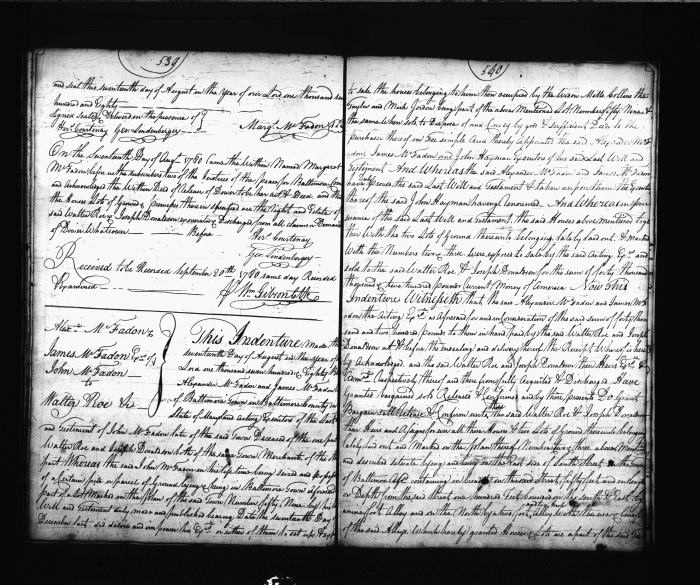 539
and seal this seventeenth day of August in the Year of our Lord one thousand seven
hundred and Eighty
Signed Sealed & Delivered in the presence of
Hes. Courtenay Geo Lindenberger
Margt McFadon Seal
On the Seventeenth Day of Augt 1780 Came the Within Named Margaret
McFadon before us the subscribers two of the Justices of the peace for Baltimore County
and Acknowledged the Within Deed of Release of Dower to be her act & Deed and
the house Lots of Ground & premises therein specified are the Right and Estate of
said Walter Roe & Joseph Donaldson Discharged from all claims or Demands
of Dower Whatsoever Before
Hes. Courtenay
Geo Lindenberger
Received to be Recorded September 20th 1780 same day Recorded
& Examined
Wm Gibson Clk
Alexr McFadon &
James McFadon Exrs of
John McFadon
to
Walter Roe &c
This Indenture Made the
seventeenth Day of August in the Year of our
Lord one thousand seven hundred & Eighty
Alexander McFadon and James McFadon
of Baltimore Town in Baltimore County in
State of Maryland acting Executors of the Last
and Testament of John McFadon late of the said Town Deceased of the one part
Walter Roe and Joseph Donaldson both of the same Town Merchants of the other
part Whereas the said John McFadon in his life time being seized and possessed
of a certain piece or parcel of Ground lying & being in Baltimore Town aforesaid
part of a Lot Marked on the plan of the said Town Number fifty Nine by his
Will and testament duly made and published bearing Date the seventeenth Day
December last did desire and impower his Exrs or either of them to set up &
540
to sale the houses belonging to him then occupied by the Widow Mills Collins the
Taylor and Mich Gordon being part of the above Mentioned Lot Number fifty Nine &
the same when sold to Dispose of and Convey by good & sufficient Deeds to the
purchaser thereof in fee simple And thereby appointed the said Alexander McFa
don James McFadon and John Hayman Executors of his said Last Will and
Testament And Whereas the said Alexander McFadon and James McFadon
have proved the said Last Will and Testament & taken upon them the Execution
thereof the said John Hayman having renounced And Whereas in per
suance of the said Last Will and Testament the said Houses above mentioned Toge
ther With the two Lots of Ground thereunto belonging lately laid out & Marked
With the Numbers two & three were exposed to sale by the said acting Exrs and
sold to the said Walter Roe & Joseph Donaldson for the sum of forty thousand
thousand & two hundred pounds current Money of America Now this
Indenture Witnesseth that the said Alexander McFadon and James McF
adon the acting Exrs as aforesaid for and in consideration of the said sum of forty thou
sand and two hundred pounds to them in hand paid by the said Walter Roe and Joseph
Donaldson at & before the ensealing and delivery thereof the Receipt Whereof is here
by Acknowledged and the said Walter Roe and Joseph Donaldson their Heirs Exrs &
Admrs respectively thereof and therefrom fully Acquitted & Discharged Have
Granted bargained sold Released & Confirmed and by these presents Do Grant
Bargain sell Release & Confirm unto the said Walter Roe & Joseph Donaldson
their Heirs and Assigns for ever all them Houses & two Lots of Ground thereunto belonging
lately laid out and Marked on the plan thereof Number two & three above Mentioned
and described situate lying and being on the East side of South Street in the Town
of Baltimore containing in breadth on the said Street fifty feet and in length
or Depth from the said Street one hundred feet bounded on the south & East by
nine foot Alley and on the North by a two foot Alley With the use & benefit
of the said Alleys Which hereby granted Houses & Lots are a part of the said